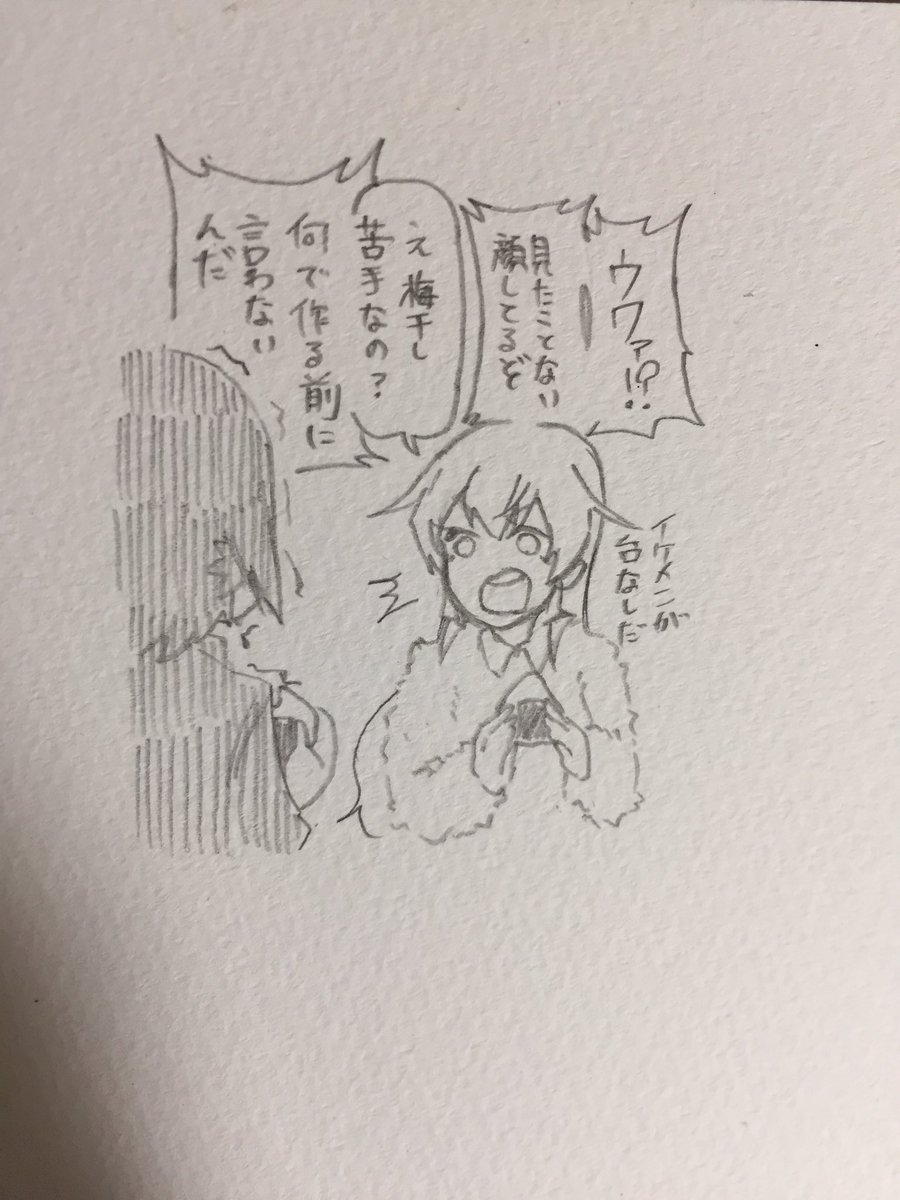 ウワァ!?
見たことない
顔してるぞ
え 梅干し
苦手なの?
何で作る前に
言わない
んだ
イケメンが
台なしだ